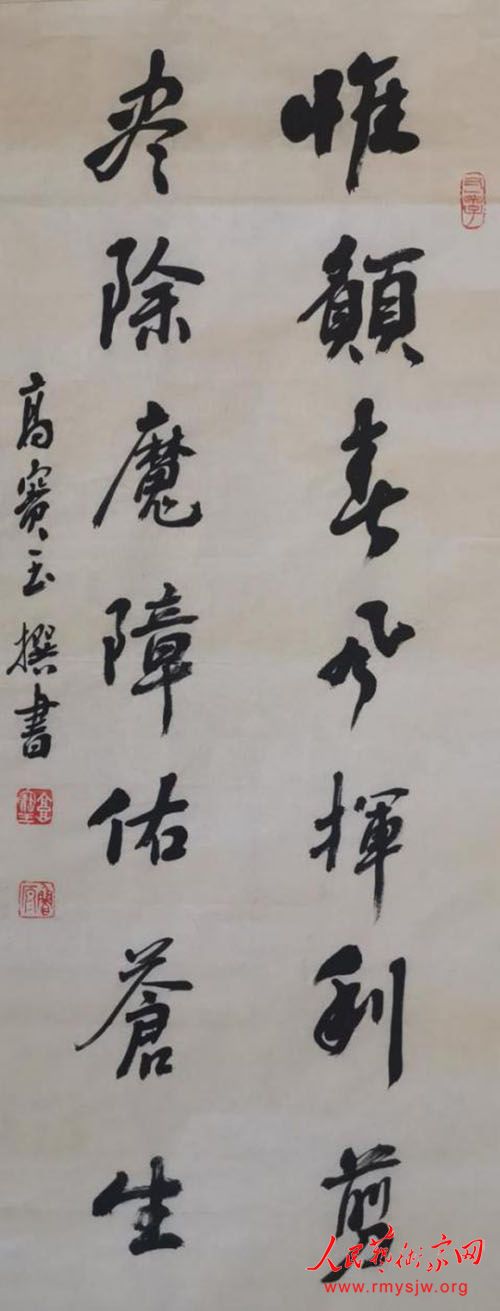 惟願春風揮利剪
尽除魔障佑蒼生
高寳玉撰書
人民藝術家网
www.rmysjw.org